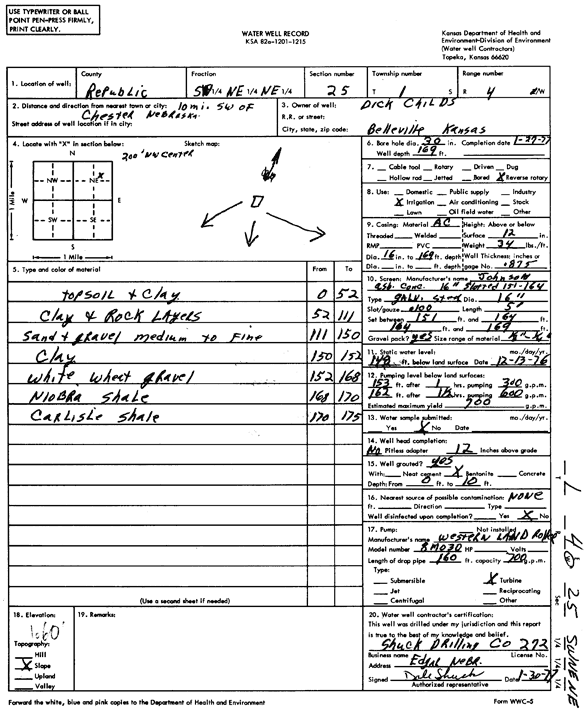 USE TYPEWRITER OR BALL
POINT PEN-PRESS FIRMLY,
PRINT CLEARLY.
WATER WELL RECORD
KSA 82a-1201-1215
Kansas Department of Health and
Environment-Division of Environment
(Water well Contractors)
Topeka, Kansas 66620
1. Location of well:
County
Republic
Fraction
SW 1/4 NE 1/4 NE 1/4
Section number
25
Township number
T 1 S
Range number
R 4 E/W
2. Distance and direction from nearest town or city: 10 mi. SW OF
Chester Nebraska
Street address of well location if in city:
3. Owner of well: DICK CHILDS
R.R. or street:
City, state, zip code: Belleville Kansas
4. Locate with "X" in section below: Sketch map:
200' NW CENTER
N
NW NE X
W E
SW SE
S
1 Mile
1 Mile
6. Bore hole dia. 30 in. Completion date 1-27-77
Well depth 169 ft.
7. Cable tool Rotary Driven Dug
Hollow rod Jetted Bored X Reverse rotary
8. Use: Domestic Public supply Industry
X Irrigation Air conditioning Stock
Lawn Oil field water Other
9. Casing: Material AC Height: Above or below
Threaded Welded Surface 12 in.
RMP PVC Weight 34 lbs./ft.
Dia. 16 in. to 169 ft. depth Wall Thickness: inches or
Dia. in. to ft. depth gage No. .875
10. Screen: Manufacturer's name Johnson
asb. Conc. 16" Slotted 151-164
Type galv. steel Dia. 16"
Slot/gauze #100 Length 5'
Set between 151 ft. and 164 ft.
164 ft. and 169 ft.
Gravel pack? yes Size range of material
11. Static water level: mo./day/yr.
148 ft. below land surface Date 12-13-76
12. Pumping level below land surfaces:
153 ft. after 1 hrs. pumping 300 g.p.m.
162 ft. after 1 1/2 hrs. pumping 600 g.p.m.
Estimated maximum yield 700 g.p.m.
13. Water sample submitted: mo./day/yr.
Yes X No Date
14. Well head completion:
No Pitless adapter 12 Inches above grade
15. Well grouted? yes
With: Neat cement X Bentonite Concrete
Depth: From 0 ft. to 10 ft.
16. Nearest source of possible contamination: NONE
ft. Direction Type
Well disinfected upon completion? Yes X No
17. Pump: Not installed
Manufacturer's name Western LAND ROLLER
Model number RM030 HP Volts
Length of drop pipe 160 ft. capacity 700 g.p.m.
Type:
Submersible X Turbine
Jet Reciprocating
Centrifugal Other
5. Type and color of material From To
topsoil & Clay 0 52
Clay & Rock LAYERS 52 111
Sand & gravel medium to Fine 111 150
Clay 150 152
white wheat gravel 152 168
NIOBRA Shale 168 170
CARLISLE Shale 170 175
(Use a second sheet if needed)
18. Elevation:
Topography:
Hill
X Slope
Upland
Valley
19. Remarks:
20. Water well contractor's certification:
This well was drilled under my jurisdiction and this report
is true to the best of my knowledge and belief.
Shuck DRILLING Co 272
Business name License No.
Address Edgar NEBR.
Signed Dale Shuck Date 1-30-77
Authorized representative
Forward the white, blue and pink copies to the Department of Health and Environment
Form WWC-5
T 1 4W Sec 25 SWNENE
1/4 1/4 1/4